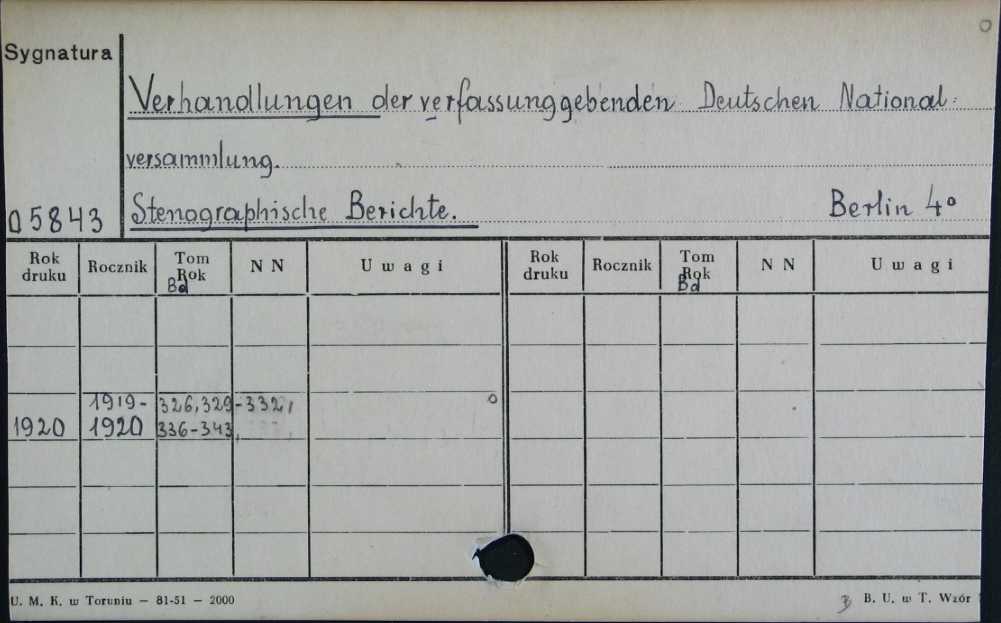 O
Sygnatura
Verhandlungen der verfassunggebenden Deutschen National-
versammlung.
05843 Stenographische Berichte. Berlin 4°
Rok druku Rocznik Tom Rok Bd N N Uwagi Rok druku Rocznik Tom Rok Bd N N Uwagi
1919- 326,329-332, o
1920 1920 336-343,
U. M. K. w Toruniu — 81-51 — 2000 B. U. w T. Wzór